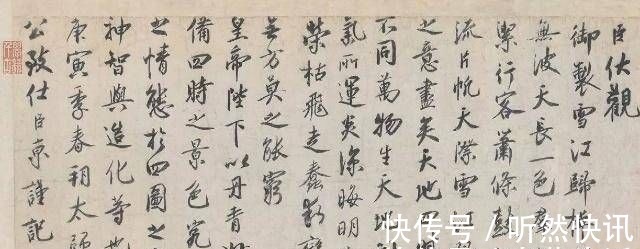 臣伏觀
御製雪江歸棹
無波天長一色羣
潔行客蕭條鼓
流片帆天際雪江
之意盡矣天地四
不同萬物生天地
氣所運炎涼晦明
榮枯飛走蠢動變
無方莫之能窮
皇帝陛下以丹青
備四時之景色究
之情態於四圖之
神智與造化等也
庚寅季春朔太師
公致仕臣京謹記
快传号 / 听然快讯